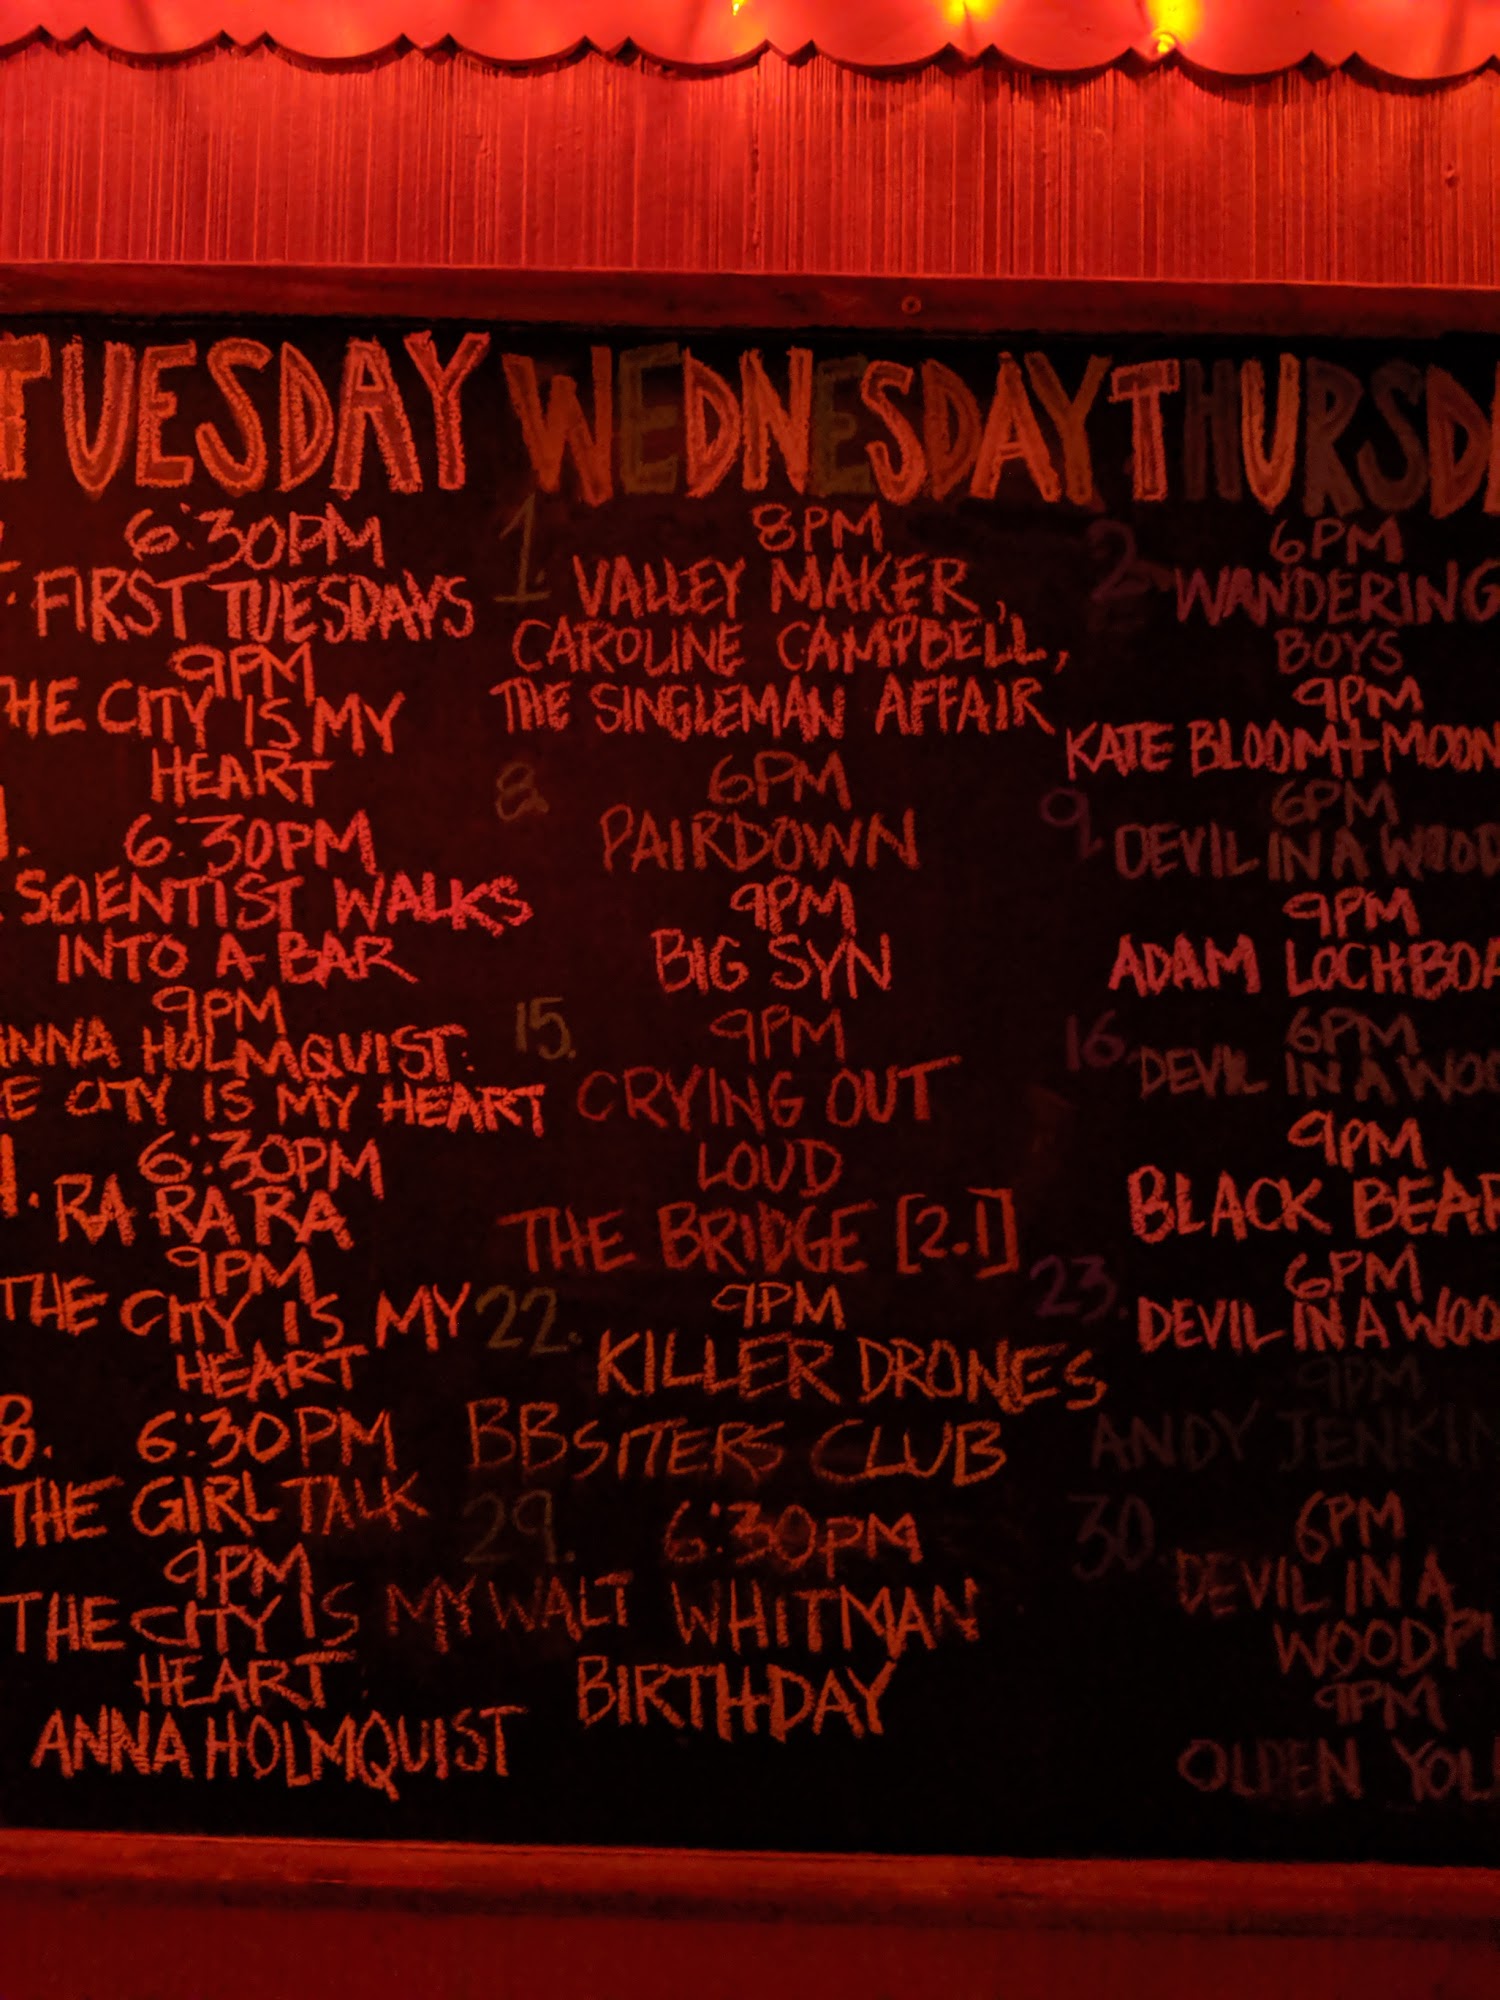 TUESDAY
6:30PM
FIRST TUESDAYS
9PM
THE CITY IS MY
HEART
6:30PM
SCIENTIST WALKS
INTO A BAR
9PM
ANNA HOLMQUIST:
E CITY IS MY HEART
6:30PM
RA RA RA
9PM
THE CITY IS MY
HEART
8. 6:30PM
THE GIRL TALK
9PM
THE CITY IS MY
HEART
ANNA HOLMQUIST
WEDNESDAY
1. 8PM
VALLEY MAKER,
CAROLINE CAMPBELL,
THE SINGLEMAN AFFAIR
8. 6PM
PAIRDOWN
9PM
BIG SYN
15. 9PM
CRYING OUT
LOUD
THE BRIDGE [2.1]
22. 9PM
KILLER DRONES
BBSITERS CLUB
29. 6:30PM
WALT WHITMAN
BIRTHDAY
THURSDA
2. 6PM
WANDERING
BOYS
9PM
KATE BLOOM + MOON
9. 6PM
DEVIL IN A WOOD
9PM
ADAM LOCHBOA
16. 6PM
DEVIL IN A WOO
9PM
BLACK BEAR
23. 6PM
DEVIL IN A WOO
9PM
ANDY JENKIN
30. 6PM
DEVIL IN A
WOODPI
9PM
OLDEN YOL